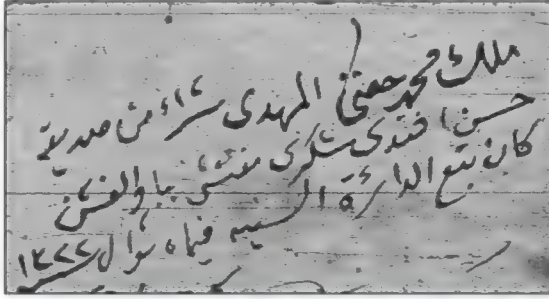 ملك محمد حفني المهدي شراء من صديقه
حسن افندى شكرى مفتش ببا والفشن
كان بتبع الدائرة السنيه فيماه شوال ١٣٢٢